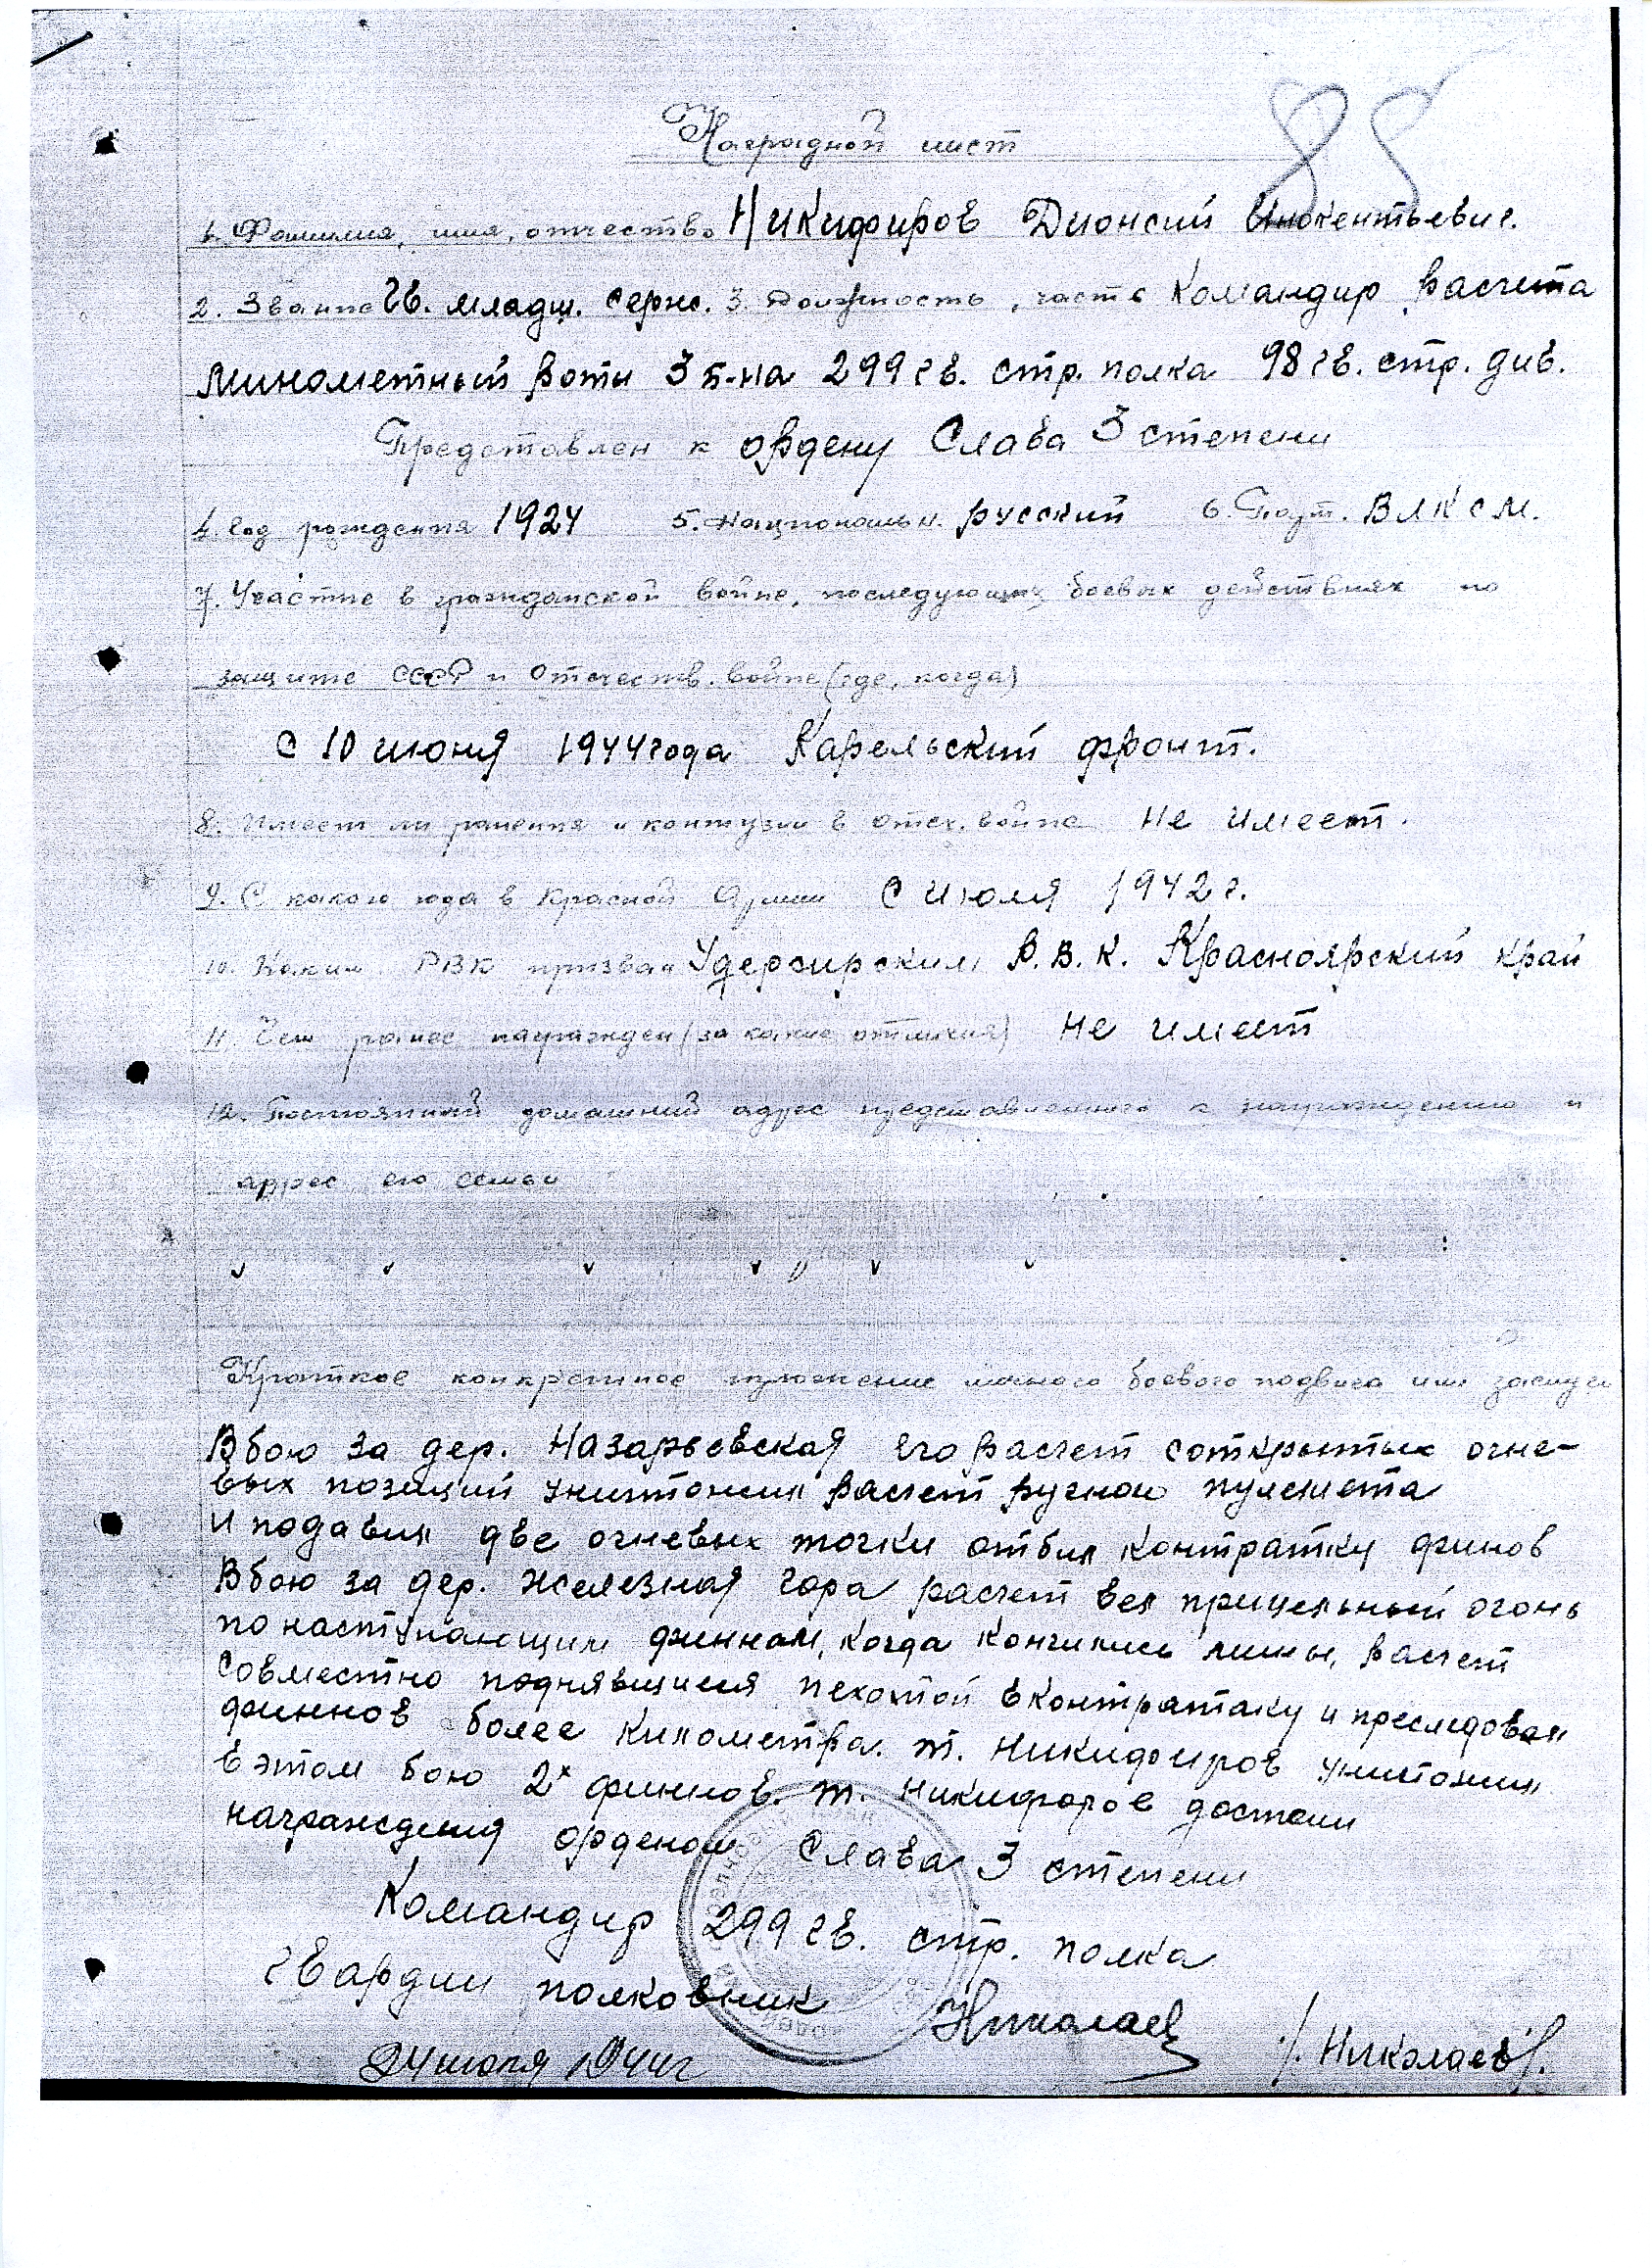 85
Наградной лист
1. Фамилия, имя, отчество Никифиров Дионсий Инокентьевич.
2. Звание Гв. младш. серж. 3. Должность, часть Командир расчета
минометный роты 3 б-на 299 гв. стр. полка 98 гв. стр. див.
Представлен к ордену Слава 3 степени
4. Год рождения 1924 5. Национальн. русский 6. Парт. ВЛКСМ.
7. Участие в гражданской войне, последующих боевых действиях по
защите СССР и Отечеств. войне (где, когда)
С 10 июня 1944 года Карельский фронт.
8. Имеет ли ранения и контузии в отеч. войне не имеет.
9. С какого года в Красной Армии С июля 1942 г.
10. Каким РВК призван Р.В.К. Красноярский край
11. Чем ранее награжден (за какие отличия) не имеет
12. Постоянный домашний адрес представленного к награждению и
адрес его семьи
Краткое конкретное изложение личного боевого подвига или заслуг
В бою за дер. Назарьевская его расчет с открытых огне-
вых позиций уничтожил расчет ручного пулемета
и подавил две огневых точки отбил контратку финов
В бою за дер. Железная гора расчет вел прицельный огонь
по наступающим финнам, когда кончились мины, расчет
совместно поднявшиеся пехотой в контратаку и преследовал
финнов более километра. т. Никифиров уничтожил
в этом бою 2х финнов. т. Никифоров достоин
награждения орденом Слава 3 степени
Командир 299 гв. стр. полка
гвардии полковник Николаев /. Николаев/.
24 июля 1944 г